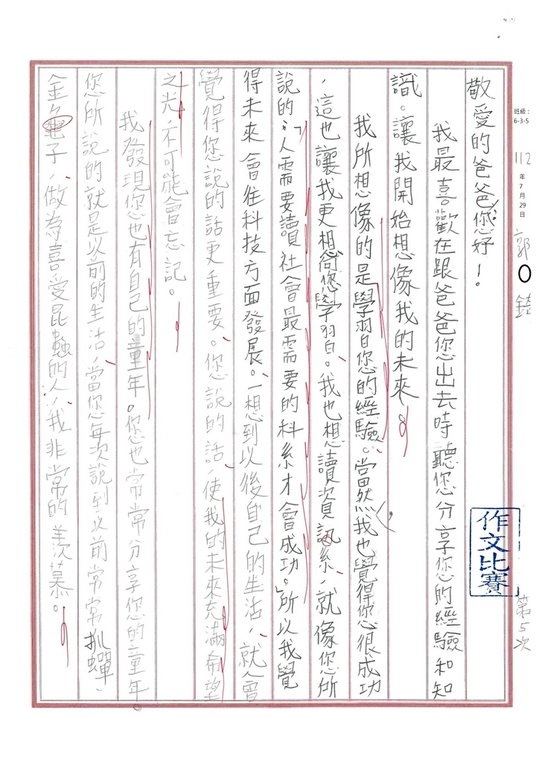 敬愛的爸爸您好！
我最喜歡在跟爸爸您出去時聽您分享您的經驗和知
識。讓我開始想像我的未來。
我所想像的是學習您的經驗。當然，我也覺得您很成功
，這也讓我更想向您學習。我也想讀資訊系，就像您所
說的：人需要讀社會最需要的科系才會成功。所以我覺
得未來會往科技方面發展。一想到以後自己的生活，就會
覺得您說的話更重要。您說的話，使我的未來充滿希望
之光，不可能會忘記。
我發現您也有自己的童年。您也常常分享您的童年。
您所說的就是以前的生活，當您每次說到以前常常抓蟬、
金龜子，做為喜愛昆蟲的人，我非常的羨慕。
班級：
6-3-5
112
年
7
月
29
日
郭
錡
作文比賽
第5次